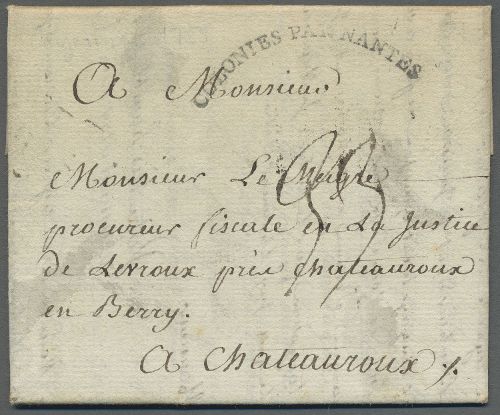 COLONIES PAR NANTES
A Monsieur
Monsieur Le Meigre
procureur fiscale en La Justice
de Levroux près Chateauroux
en Berry.
A Chateauroux